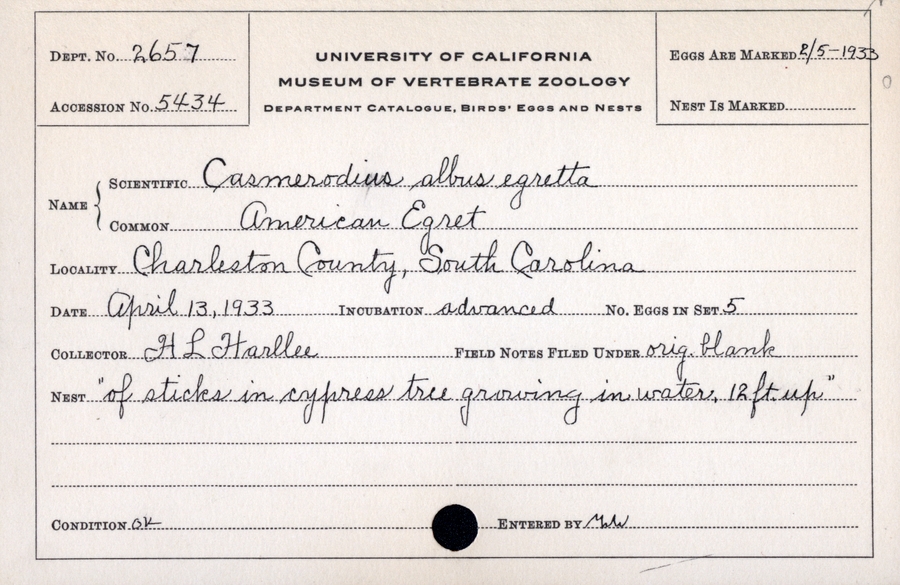 Dept. No. 2657
Accession No. 5434
UNIVERSITY OF CALIFORNIA
MUSEUM OF VERTEBRATE ZOOLOGY
Department Catalogue, Birds' Eggs and Nests
Eggs Are Marked 2/5-1933
Nest Is Marked
Name
Scientific Casmerodius albus egretta
Common American Egret
Locality Charleston County, South Carolina
Date April 13, 1933 Incubation advanced No. Eggs in Set 5
Collector H L Harllee Field Notes Filed Under orig. blank
Nest "of sticks in cypress tree growing in water, 12 ft. up"
Condition OK Entered by